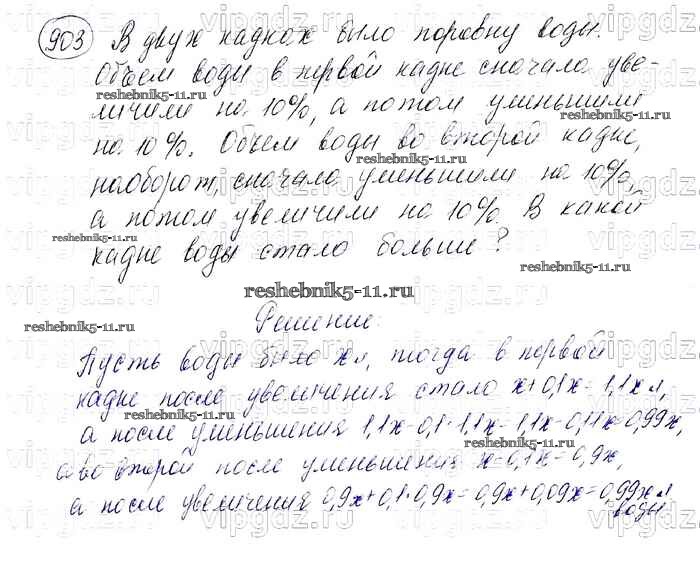 903 В двух кадках было поровну воды.
Объем воды в первой кадке сначала уве-
личили на 10%, а потом уменьшили
на 10%. Объем воды во второй кадке,
наоборот, сначала уменьшили на 10%,
а потом увеличили на 10%. В какой
кадке воды стало больше?
Решение:
Пусть воды было x л, тогда в первой
кадке после увеличения стало x+0,1x=1,1x л,
а после уменьшения 1,1x-0,1·1,1x=1,1x-0,11x=0,99x,
а во второй после уменьшения x-0,1x=0,9x,
а после увеличения 0,9x+0,1·0,9x=0,9x+0,09x=0,99x л
воды
reshebnik5-11.ru
reshebnik5-11.ru
reshebnik5-11.ru
reshebnik5-11.ru
reshebnik5-11.ru
reshebnik5-11.ru
reshebnik5-11.ru
reshebnik5-11.ru
vipgdz